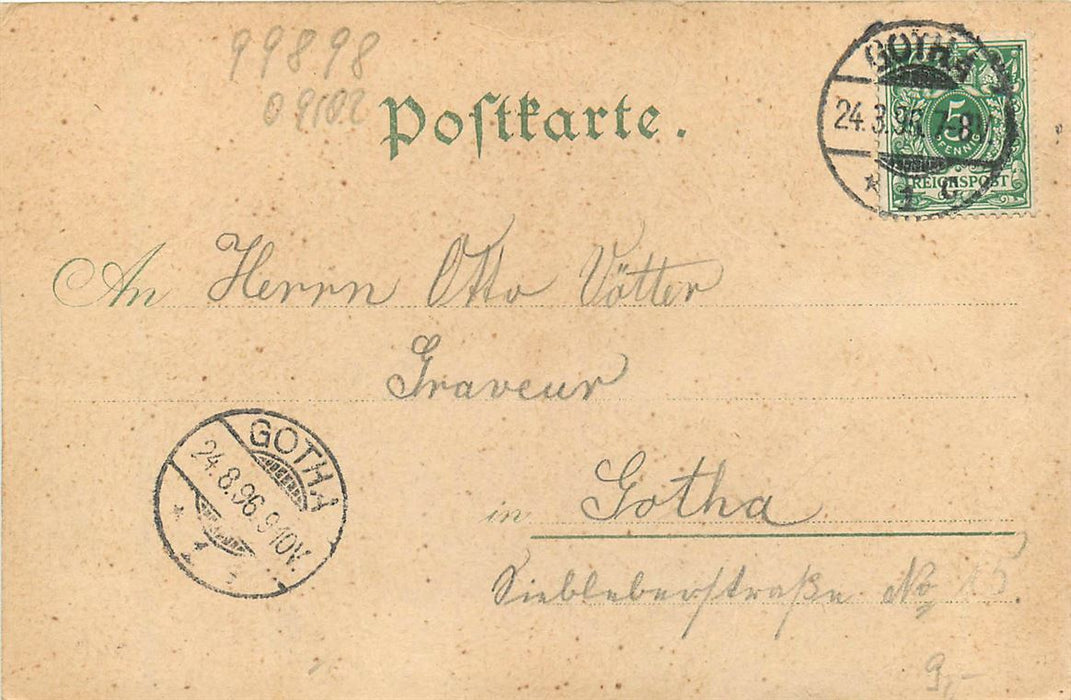 99898
09102
Postkarte.
GOTHA
24.8.96 7-8V
* 1 c
5
PFENNIG
REICHSPOST
An Herrn Otto Vötter
Graveur
in Gotha
Siebleberstraße No 15.
GOTHA
24.8.96 9-10V.
* 1 *
9,-